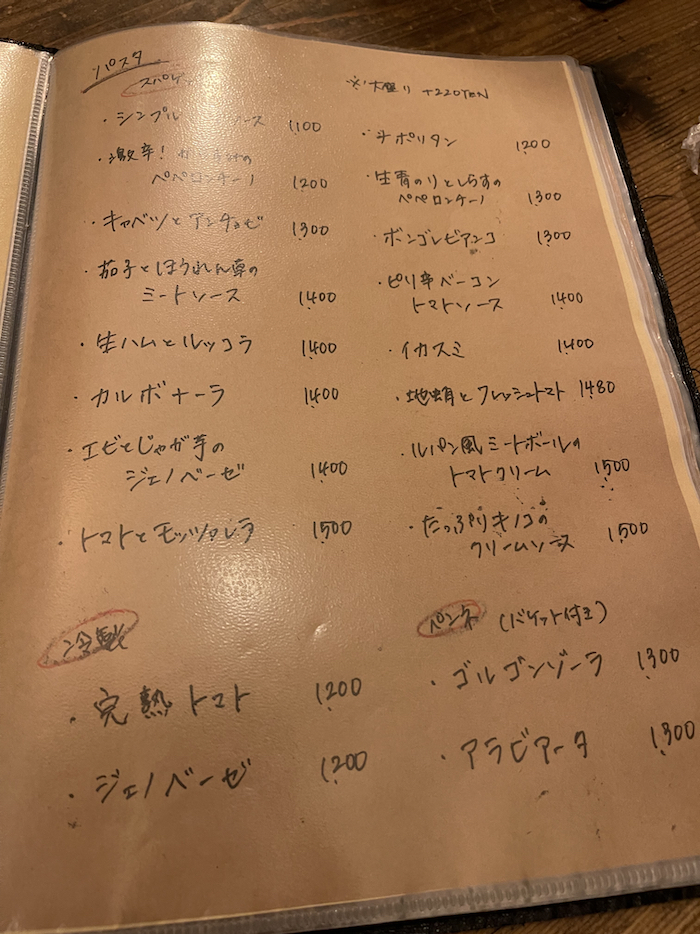 パスタ
スパゲ
※大盛り +220YEN
・シンプル ソース 1,100
・激辛! の
ペペロンチーノ 1,200
・キャベツとアンチョビ 1,300
・茄子とほうれん草の
ミートソース 1,400
・生ハムとルッコラ 1,400
・カルボナーラ 1,400
・エビとじゃが芋の
ジェノベーゼ 1,400
・トマトとモッツァレラ 1,500
・ナポリタン 1,200
・生青のりとしらすの
ペペロンチーノ 1,300
・ボンゴレビアンコ 1,300
・ピリ辛ベーコン
トマトソース 1,400
・イカスミ 1,400
・地蛸とフレッシュトマト 1,480
・ルパン風ミートボールの
トマトクリーム 1,500
・たっぷりキノコの
クリームソース 1,500
冷製
・完熟トマト 1,200
・ジェノベーゼ 1,200
ペンネ (バケット付き)
・ゴルゴンゾーラ 1,300
・アラビアータ 1,300